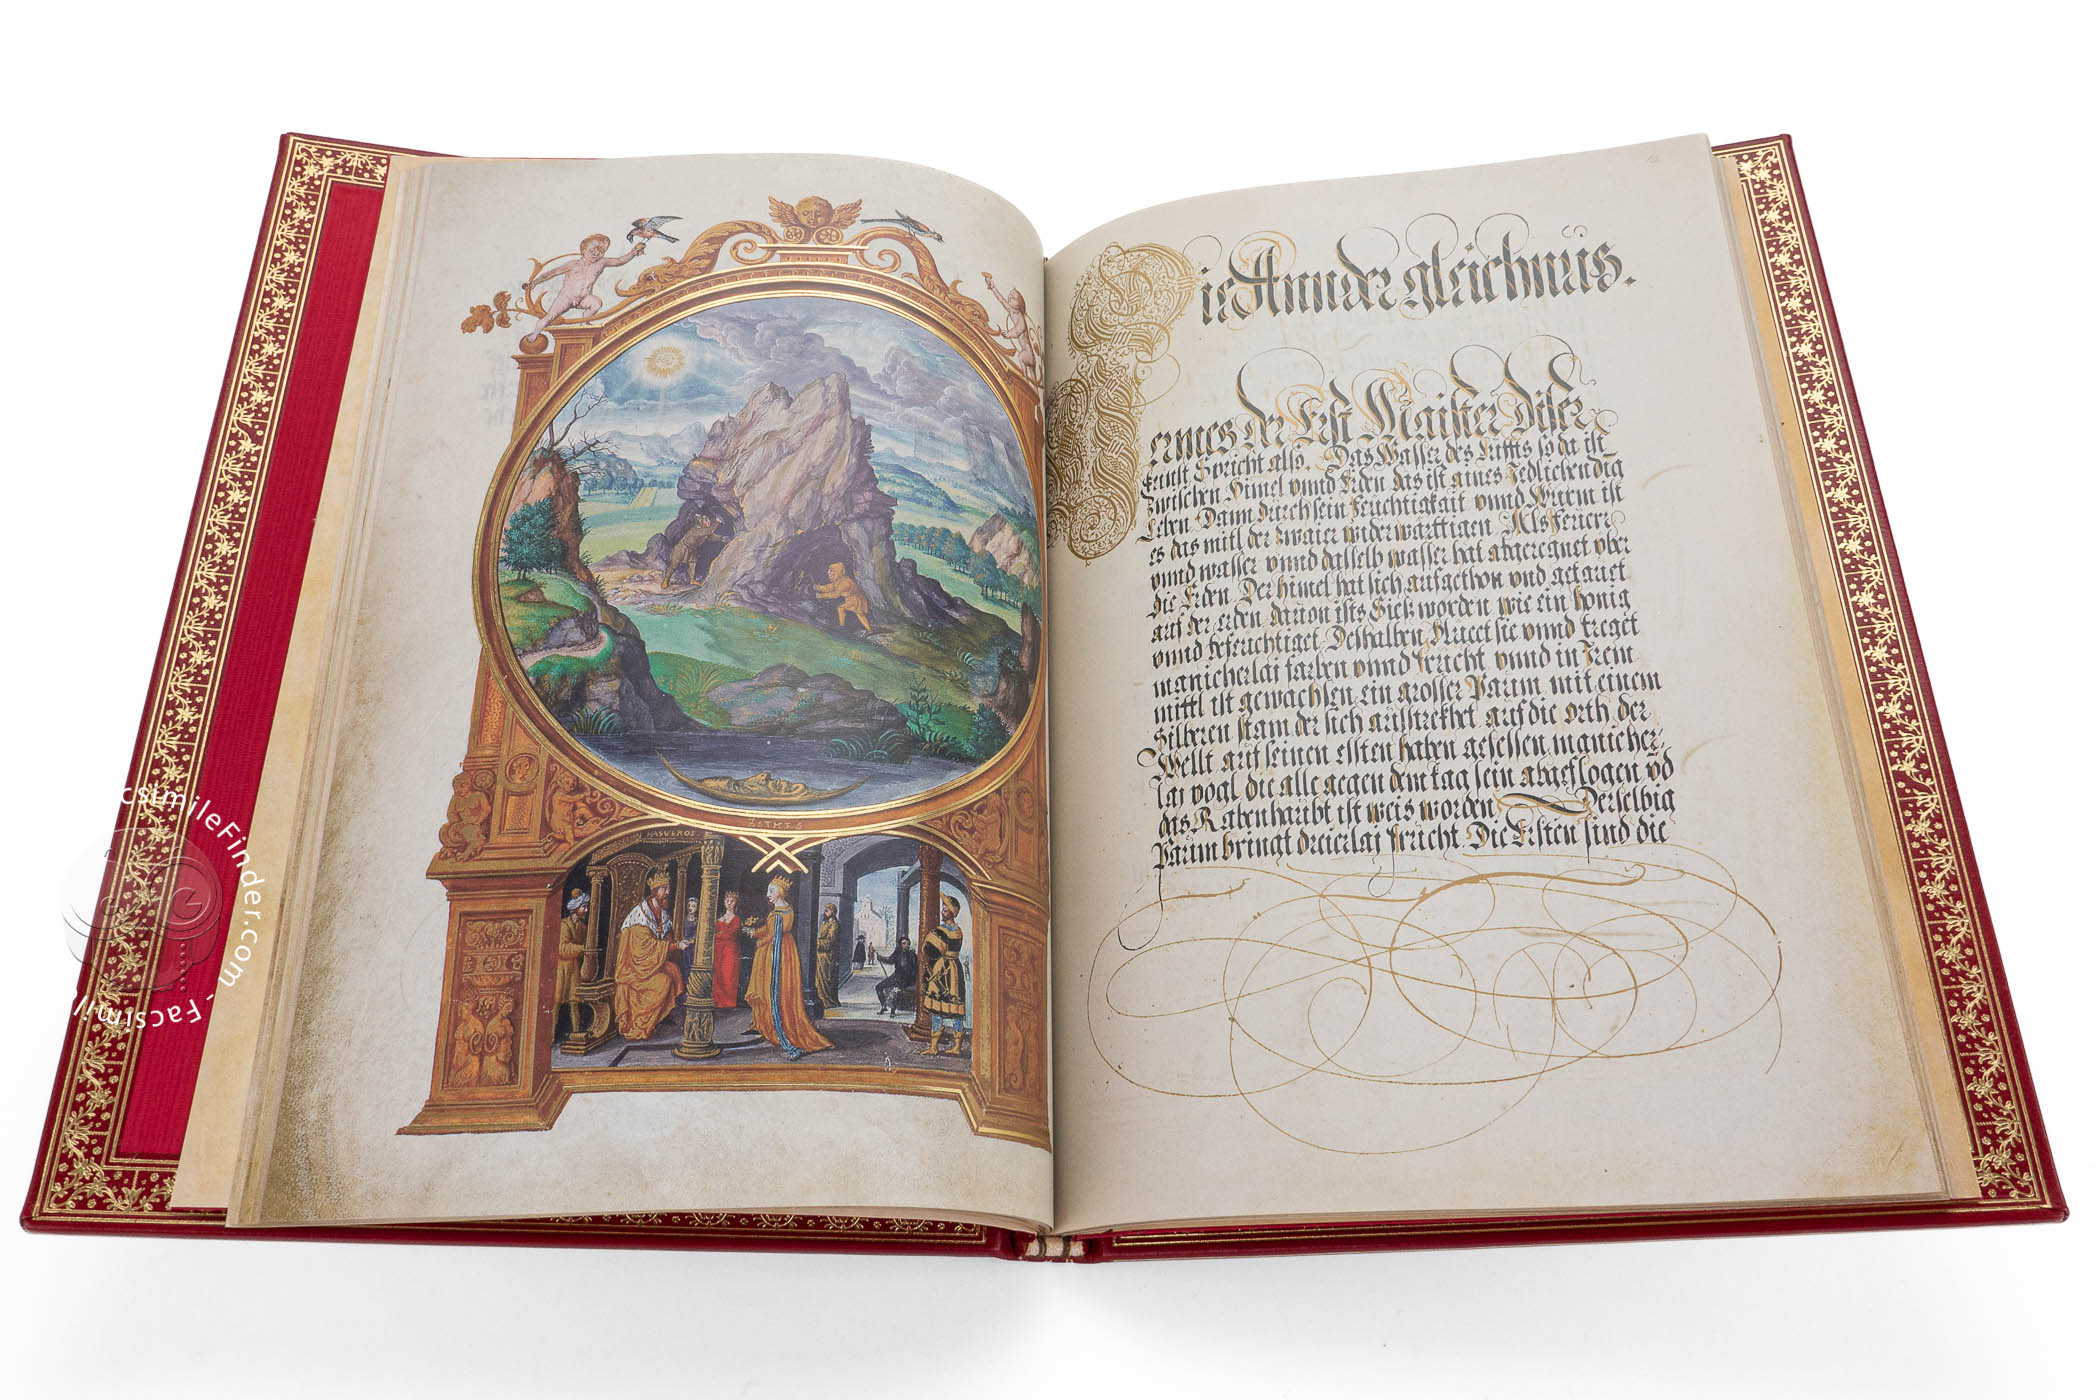 HASVEROS
ESTHES
14
Die Annder gleichnus.
Hermes der Erst Maister diser
Kunst Spricht also. Das Wasser des Luffts so da ist
Zwischen Himel vnnd Erden das ist aines Jedlichen ding
Leben Dann durch sein Feuchtigkait vnnd Wirem ist
es das mitl der zwaier widerwärttigen Als Feuerr
vnnd wasser vnnd dasselb wasser hat abgeregnet vber
die Erden Der himel hat sich auffgethon vnd getauet
auf der erden dauon ists Sieß worden wie ein honig
vnnd befeuchtiget Deshalben plueet sie vnnd treget
manicherlai farben vnnd frucht vnnd in Irem
mittl ist gewachsen ein grosser Paum mit einem
Silberen stam der sich ausstrekhet auf die orth der
Wellt auf seinen essten haben gesessen manicher
lai vogl die alle gegen dem tag sein abgeflogen vd
das Rabenhaubt ist weis worden Derselbig
Paum bringt dreierlai frucht Die Ersten sind die
csimileFinder.com - Facsimil